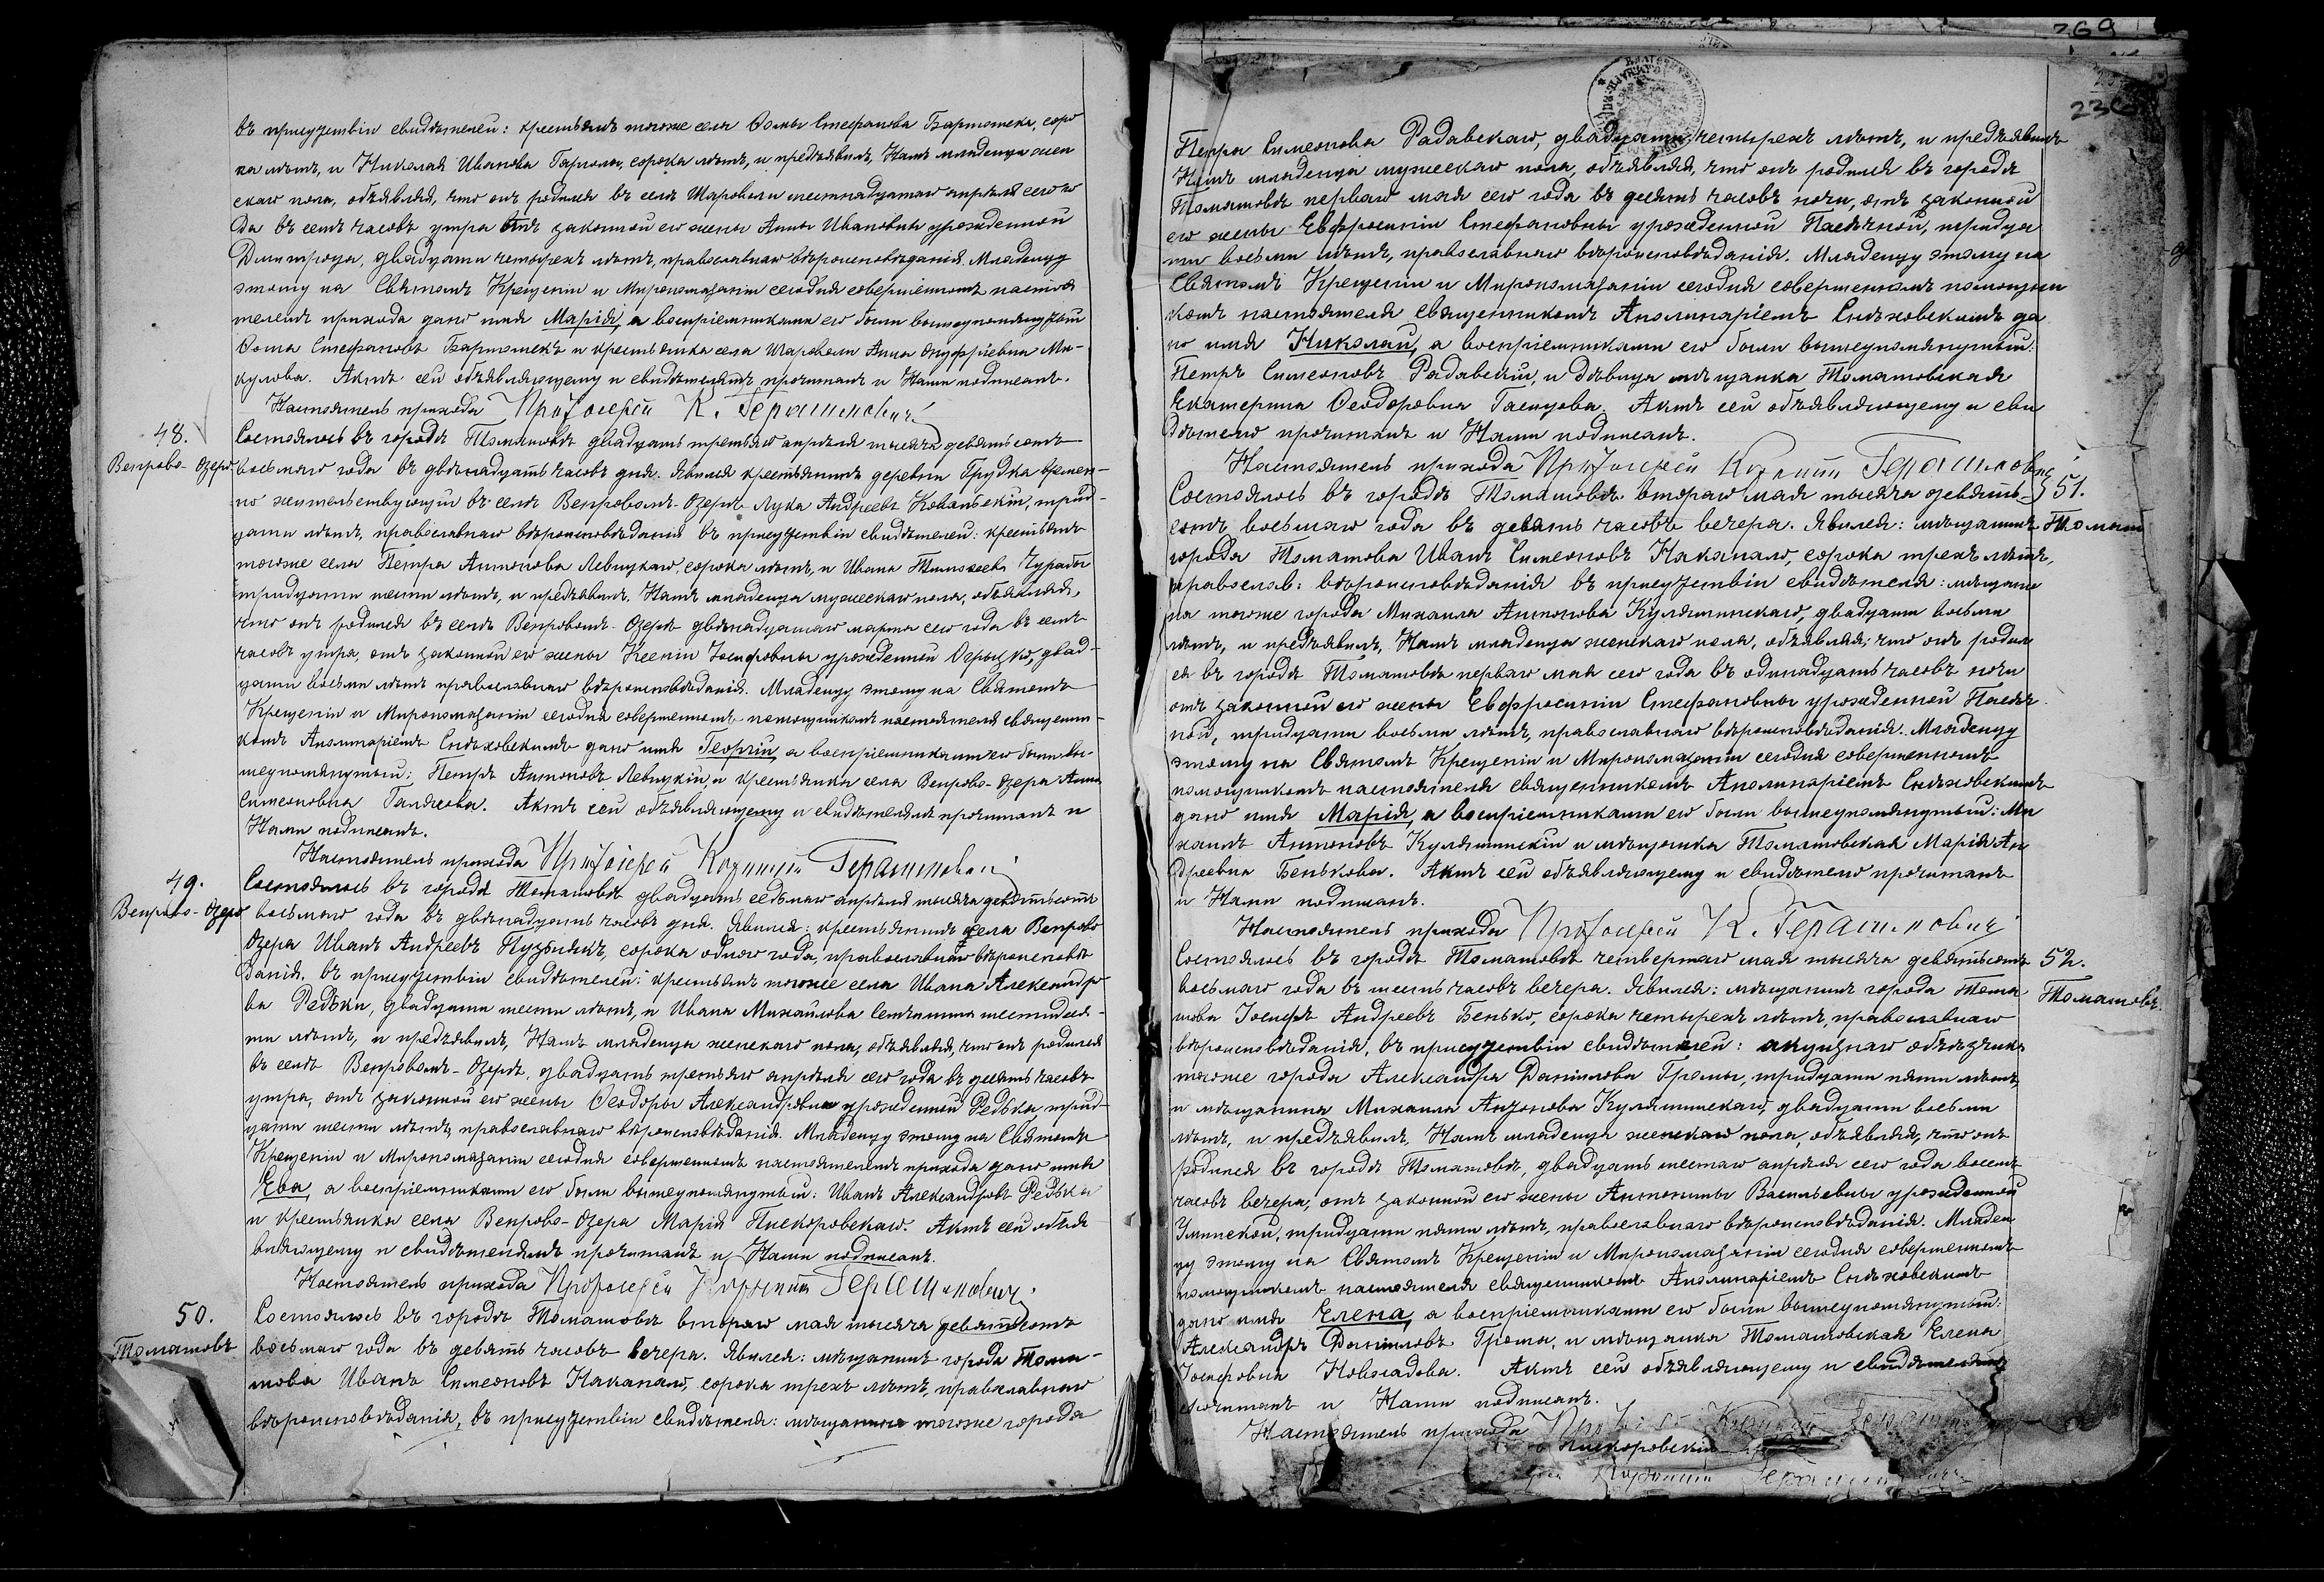 въ присутствіи свидѣтелей: крестьянъ тогоже села Ѳомы Стефанова Бартошека, соро
ка лѣтъ, и Николая Иванова сорока лѣтъ, и предъявилъ Намъ младенца жен
скаго пола, объявляя, что онъ родился въ селѣ шестнадцатаго апрѣля сего го
да въ семь часовъ утра отъ законной его жены Анны Ивановны урожденной
двадцати четырехъ лѣтъ, православнаго вѣроисповѣданія. Младенцу
этому на Святомъ Крещеніи и Миропомазаніи сегодня совершенномъ настоя
телемъ прихода дано имя Марія, а воспріемниками его были вышеупомянутый
Ѳома Стефановъ Бартошекъ и крестьянка села Анна Онуфріевна Ми-
кулова. Актъ сей объявляющему и свидѣтелямъ прочитанъ и Нами подписанъ.
Настоятель прихода Протоіерей К. Герашиловичъ
48.
Венрово-Озеро
Состоялось въ городѣ Томашовѣ двадцать третьяго апрѣля тысяча девятьсотъ
восьмаго года въ двѣнадцать часовъ дня. Явился крестьянинъ деревни Грудка времен-
но жительствующій въ селѣ Венровомъ-Озерѣ Лука Андреевъ Ковальскій, трид-
цати лѣтъ, православнаго вѣроисповѣданія въ присутствіи свидѣтелей: крестьянъ
тогоже села Петра Антонова Левицкаго, сорока лѣтъ, и Ивана Чурабы
тридцати шести лѣтъ, и предъявилъ Намъ младенца мужескаго пола, объявляя,
что онъ родился въ селѣ Венровомъ-Озерѣ двѣнадцатаго марта сего года въ семь
часовъ утра, отъ законной его жены Ксеніи Іосифовны урожденной Огрызко, двад-
цати восьми лѣтъ православнаго вѣроисповѣданія. Младенцу этому на Святомъ
Крещеніи и Миропомазаніи сегодня совершенномъ помощникомъ настоятеля священни-
комъ Аполинаріемъ Снѣховскимъ дано имя Георгій, а воспріемниками его были вы-
шеупомянутый: Петръ Антоновъ Левицкій, и крестьянка села Венрово-Озера Анна
Симеоновна Галяхова. Актъ сей объявляющему и свидѣтелямъ прочитанъ и
Нами подписанъ.
Настоятель прихода Протоіерей Корнилій Герашиловичъ
49.
Венрово-Озеро
Состоялось въ городѣ Томашовѣ двадцать седьмаго апрѣля тысяча девятьсотъ
восьмаго года въ двѣнадцать часовъ дня. Явился: крестьянинъ села Венрово
Озера Иванъ Андреевъ Пузнякъ, сорока одного года, православнаго вѣроисповѣ
данія, въ присутствіи свидѣтелей: крестьянъ тогоже села Ивана Александро
ва Редьки, двадцати шести лѣтъ, и Ивана Михайлова шестидеся-
ти лѣтъ, и предъявилъ, Намъ младенца женскаго пола, объявляя, что онъ родился
въ селѣ Венровомъ-Озерѣ, двадцать третьяго апрѣля сего года въ десять часовъ
утра, отъ законной его жены Ѳеодоры Александровны урожденной Редька, трид-
цати шести лѣтъ, православнаго вѣроисповѣданія. Младенцу этому на Святомъ
Крещеніи и Миропомазаніи сегодня совершенномъ настоятелемъ прихода дано имя
Ева, а воспріемниками его были вышеупомянутый: Иванъ Александровъ Редька
и крестьянка села Венрово-Озера Марія Пискоровскаго. Актъ сей объя
вляющему и свидѣтелямъ прочитанъ и Нами подписанъ.
Настоятель прихода Протоіерей Корнилій Герашиловичъ.
50.
Томашовъ
Состоялось въ городѣ Томашовѣ втораго мая тысяча девятьсотъ
восьмаго года въ девять часовъ вечера. Явился: мѣщанинъ города Тома-
шова Иванъ Симеоновъ Наканало, сорока трехъ лѣтъ, православнаго
вѣроисповѣданія, въ присутствіи свидѣтеля: мѣщанина тогоже города
269
Петра Симеонова Радавскаго, двадцати четырехъ лѣтъ, и предъявилъ
Намъ младенца мужескаго пола, объявляя, что онъ родился въ городѣ
Томашовѣ перваго мая сего года въ десять часовъ ночи, отъ законной
его жены Евфросиніи Стефановны урожденной Пасѣчной, тридца
ти восьми лѣтъ, православнаго вѣроисповѣданія. Младенцу этому на
Святомъ Крещеніи и Миропомазаніи сегодня совершенномъ помощни
комъ настоятеля священникомъ Аполинаріемъ Снѣховскимъ да
но имя Николай, а воспріемниками его были вышеупомянутый:
Петръ Симеоновъ Радавскій, и дѣвица мѣщанка Томашовская
Екатерина Ѳеодоровна Гасицова. Актъ сей объявляющему и сви
дѣтелю прочитанъ и Нами подписанъ.
Настоятель прихода Протоіерей Корнилій Герашиловичъ
51.
Томашовъ
Состоялось въ городѣ Томашовѣ втораго мая тысяча девять-
сотъ восьмаго года въ девять часовъ вечера. Явился: мѣщанинъ
города Томашова Иванъ Симеоновъ Наканало, сорока трехъ лѣтъ,
православ: вѣроисповѣданія въ присутствіи свидѣтеля: мѣщани
на тогоже города Михаила Антонова Куляшинскаго, двадцати восьми
лѣтъ, и предъявилъ, Намъ младенца женскаго пола, объявляя, что онъ родил
ся въ городѣ Томашовѣ перваго мая сего года въ одинадцать часовъ ночи
отъ законной его жены Евфросиніи Стефановны урожденной Пасѣч
ной, тридцати восьми лѣтъ, православнаго вѣроисповѣданія. Младенцу
этому на Святомъ Крещеніи и Миропомазаніи сегодня совершенномъ
помощникомъ настоятеля священникомъ Аполинаріемъ Снѣховскимъ
дано имя Марія, а воспріемниками его были вышеупомянутый: Ми
хаилъ Антоновъ Куляшинскій и мѣщанка Томашовская Марія Ан
дреевна Бенькова. Актъ сей объявляющему и свидѣтелю прочитанъ
и Нами подписанъ.
Настоятель прихода Протоіерей К. Герашиловичъ
52.
Томашовъ
Состоялось въ городѣ Томашовѣ четвертаго мая тысяча девятьсотъ
восьмаго года въ шесть часовъ вечера. Явился: мѣщанинъ города Тома
шова Іосифъ Андреевъ Бенько, сорока четырехъ лѣтъ, православнаго
вѣроисповѣданія, въ присутствіи свидѣтелей: акцизнаго объѣзчика
тогоже города Александра Даніилова Громы, тридцати пяти лѣтъ,
и мѣщанина Михаила Антонова Куляшинскаго, двадцати восьми
лѣтъ, и предъявилъ, Намъ младенца женскаго пола, объявляя, что онъ
родился въ городѣ Томашовѣ, двадцать шестаго апрѣля сего года восемь
часовъ вечера, отъ законной его жены Антонины Васильевны урожденной
Уминской, тридцати пяти лѣтъ, православнаго вѣроисповѣданія. Младен
цу этому на Святомъ Крещеніи и Миропомазаніи сегодня совершенномъ
помощникомъ настоятеля священникомъ Аполинаріемъ Снѣховскимъ
дано имя Елена, а воспріемниками его были вышеупомянутый:
Александръ Даніиловъ Грома, и мѣщанка Томашовская Елена
Іосифовна Новосадова. Актъ сей объявляющему и свидѣтелямъ
прочитанъ и Нами подписанъ.
Настоятель прихода
Пискоровскій
Корнилій